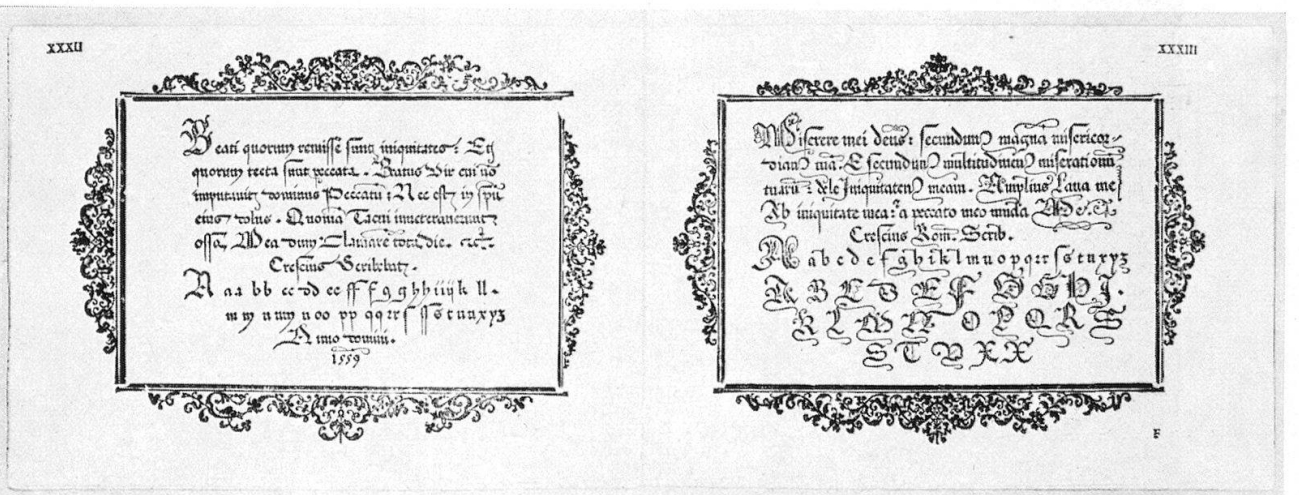 XXXII
Beati quorum remisse sunt iniquitates: Et
quorum tecta sunt peccata. Beatus Vir cui nō
imputavit dominus Peccatū: Nec est in spūu
eius dolus. Quoniā Tacui inveteraverunt
ossa Mea dum Clamarē tota die. &c.
Crescius Scribebat.
A a a b b c c d d e e ff f g g h h i i ij k ll.
m m n n o o p p q q r r ſ ſſ s t u u x y z
Anno domini.
1559
XXXIII
Miserere mei deus: secundum magnā misericor-
diam tuā. Et secundum multitudinem miserationū
tuarū: dele Iniquitatem meam. Amplius Lava me
Ab iniquitate mea: & a peccato meo munda
Crescius Rom. Scrib.
A a b c d e f g h i k l m n o p q r r ſ s t u x y z
A B C D E F G H I.
K L M N O P Q R S
S T V X X
F